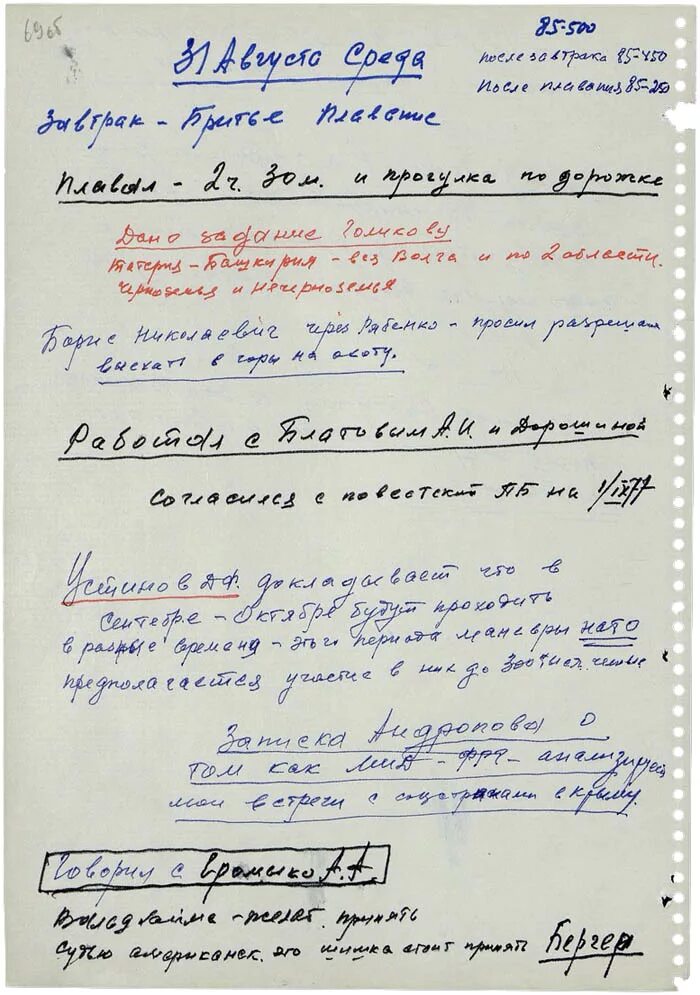 85-500
31 Августа Среда
после завтрака 85-450
После плавания 85-200
Завтрак - Бритье Плавание
Плавал - 2ч. 30м. и прогулка по дорожке
Дано задание Голикову
татария - Башкирия - вся Волга и по 2 области.
Черноземья и Нечерноземья
Борис Николаевич через Рябенко - просил разрешения
выехать в горы на охоту.
Работал с Блатовым А.И. и Дорошиной
Согласился с повесткой ПБ на 1/IX77
Устинов Д.Ф. докладывает что в
сентябре - Октябре будут проходить
в разные времена - этого периода маневры НАТО
предполагается участие в них до 300 тыс. чел
Записка Андропова О
том как МИД - ФРГ - анализирует
мои встречи с соцстранами в Крыму.
Говорил с Громыко А.А.
Вальдхайма - принять
Судью американск. это шишка стоит принять Бергер